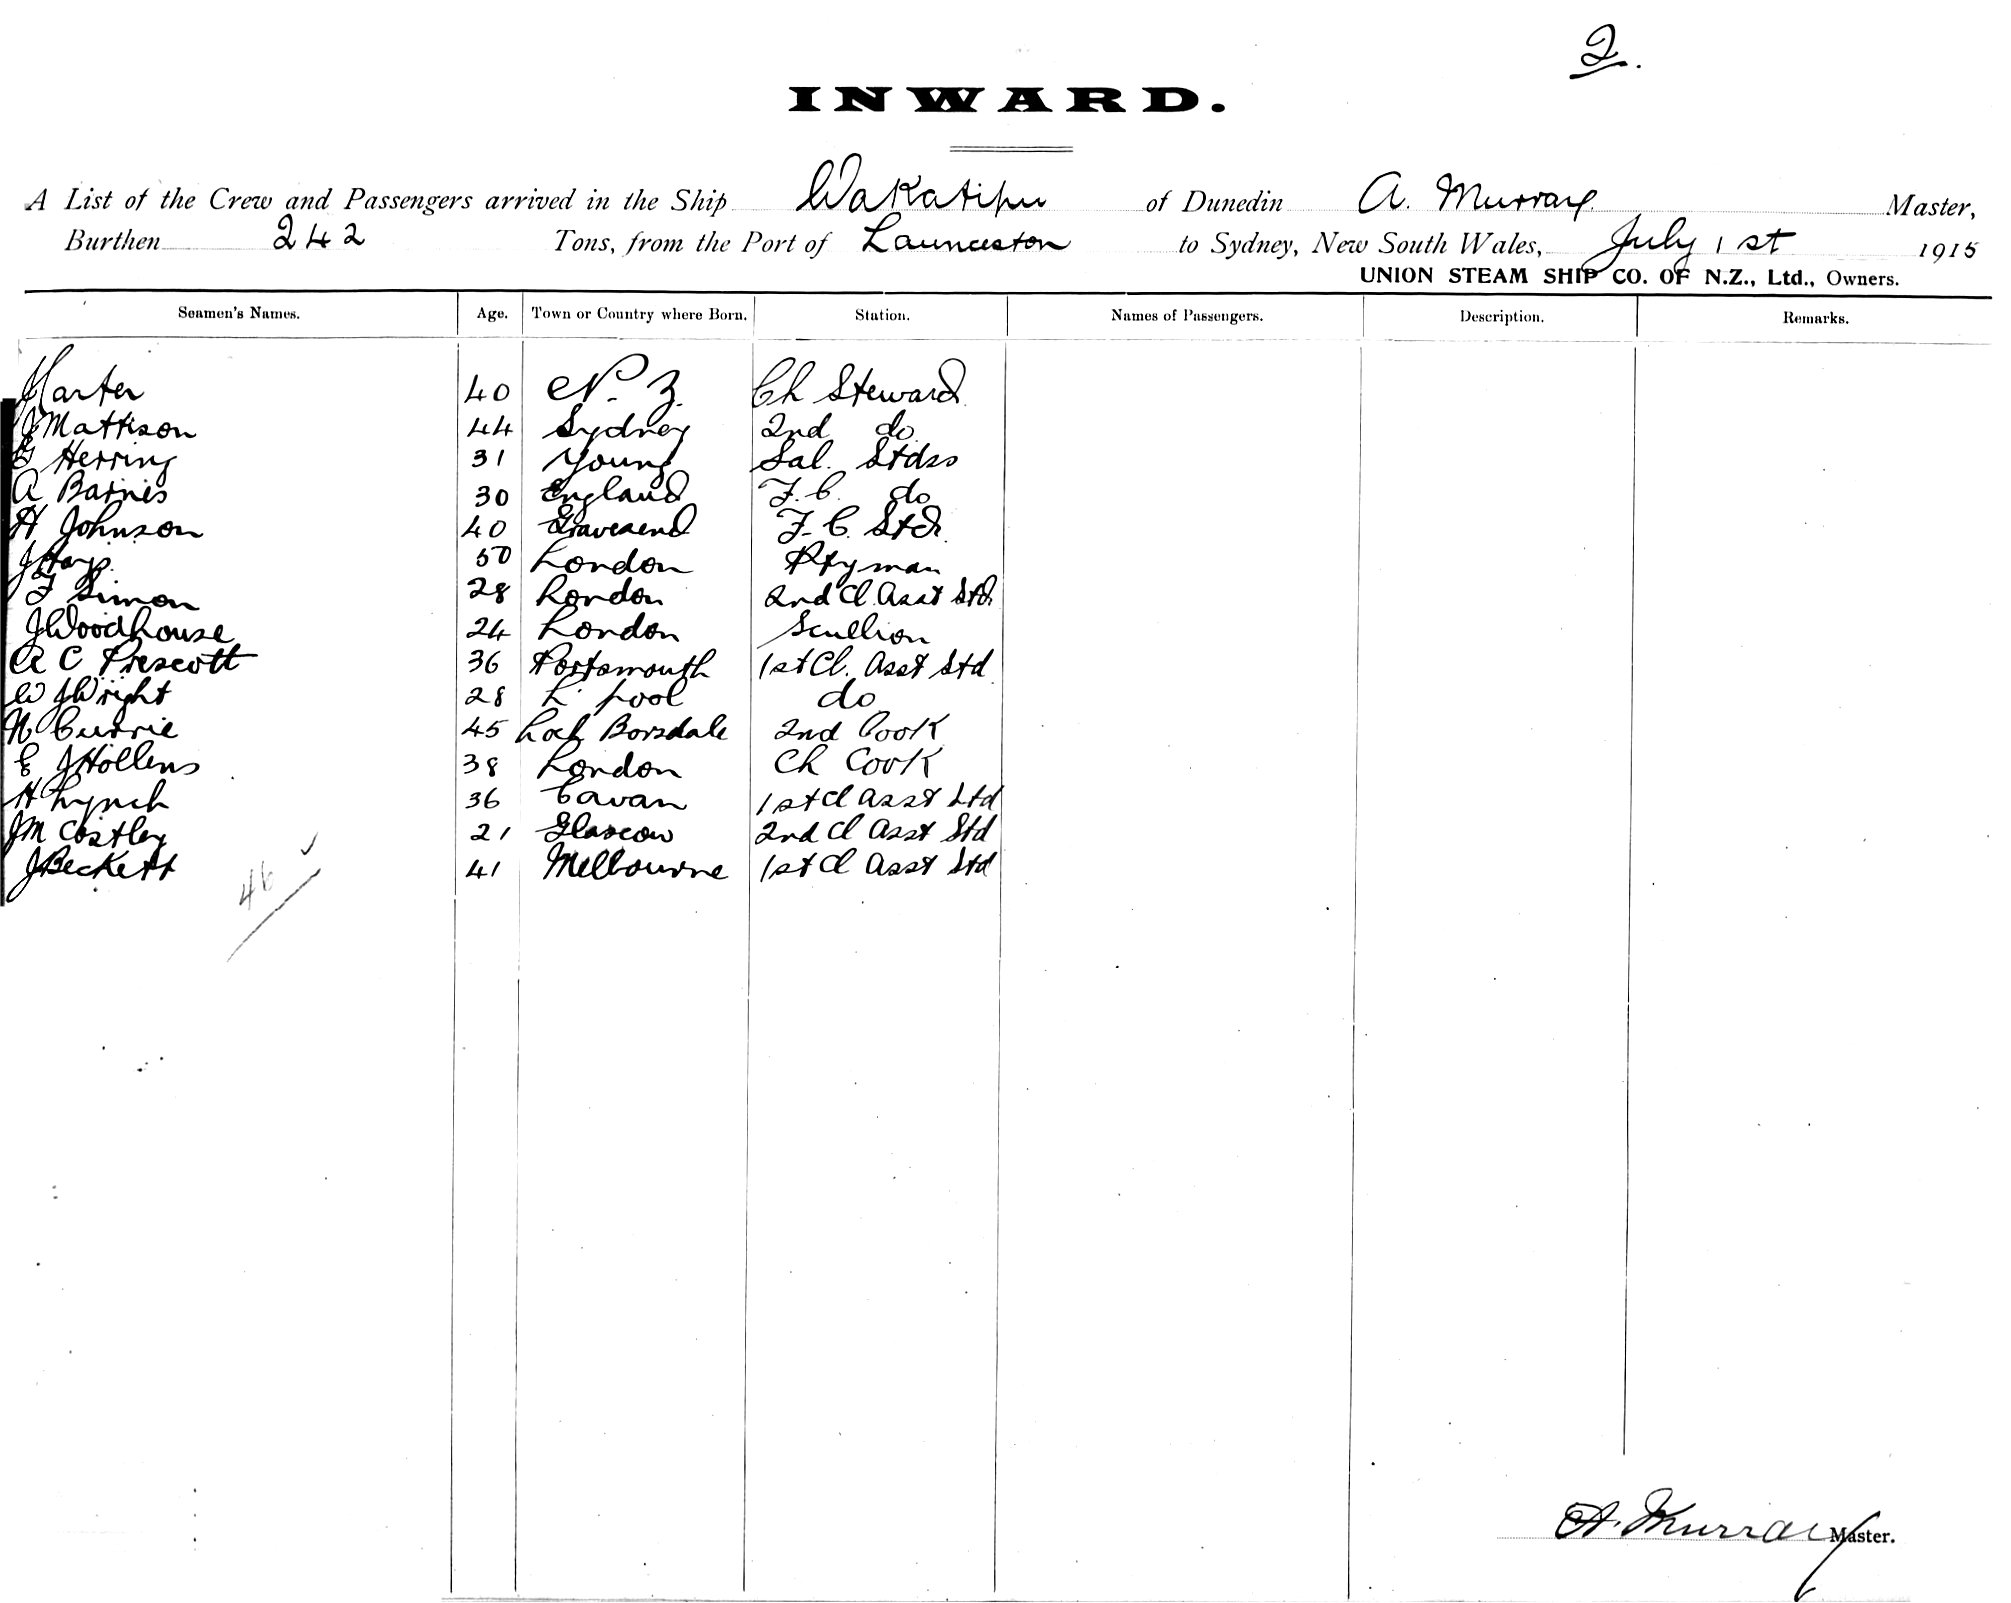 2.
INWARD.
A List of the Crew and Passengers arrived in the Ship Wakatipu of Dunedin A. Murray Master,
Burthen 242 Tons, from the Port of Launceston to Sydney, New South Wales, July 1st 1915
UNION STEAM SHIP CO. OF N.Z., Ltd., Owners.
Seamen's Names. Age. Town or Country where Born. Station. Names of Passengers. Description. Remarks.
40 N. Z. Ch Steward
J Mattison 44 Sydney 2nd do
Herring 31 Young Sal. Stdss
A Barnes 30 England F. C. do
H Johnson 40 Gravesend F. C. Std.
J Hays 50 London Ptyman
F Simon 28 London 2nd Cl. Asst Std
J Woodhouse 24 London Scullion
A C Prescott 36 Portsmouth 1st Cl. Asst Std
W J Wright 28 L'pool do
N Currie 45 Loch Borsdale 2nd Cook
E J Hollens 38 London Ch Cook
H Lynch 36 Cavan 1st Cl Asst Std
J M Costley 21 Glascow 2nd Cl Asst Std
J Beckett 41 Melbourne 1st Cl Asst Std
46
A. Murray Master.